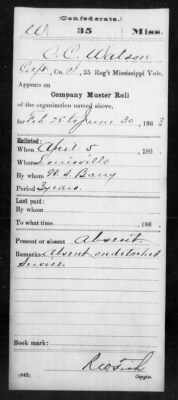 (Confederate.)
W 35 Miss.
O. C. Watson
Capt, Co. I, 35 Reg't Mississippi Vols.
Appears on
Company Muster Roll
of the organization named above,
for Feb 28 to June 30, 1863
Enlisted:
When April 5, 186
Where Louisville
By whom W. S. Barry
Period 3 years
Last paid:
By whom
To what time , 186
Present or absent Absent.
Remarks: Absent on detached
service
Book mark:
(642) Copyist.